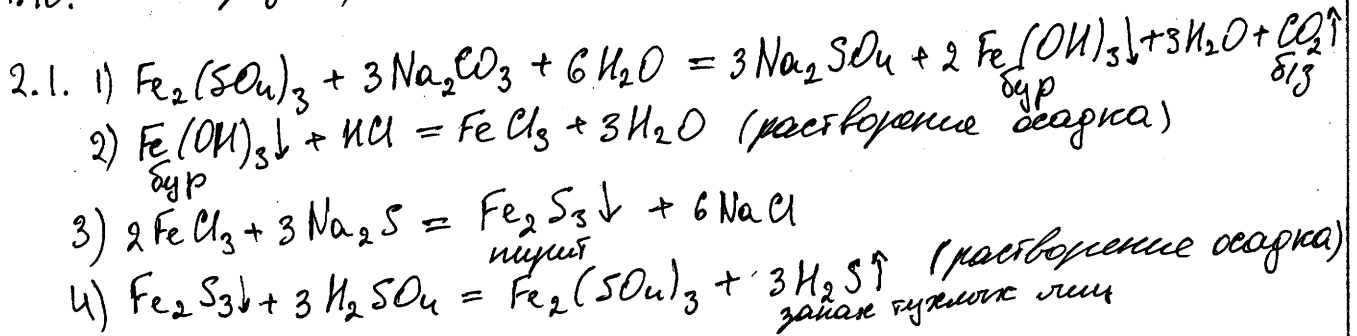 2.1. 1) Fe₂(SO₄)₃ + 3Na₂CO₃ + 6H₂O = 3Na₂SO₄ + 2Fe(OH)₃↓ + 3H₂O + CO₂↑
бур б/з
2) Fe(OH)₃↓ + HCl = FeCl₃ + 3H₂O (растворение осадка)
бур
3) 2FeCl₃ + 3Na₂S = Fe₂S₃↓ + 6NaCl
пирит
4) Fe₂S₃↓ + 3H₂SO₄ = Fe₂(SO₄)₃ + 3H₂S↑ (растворение осадка)
запах тухлых яиц